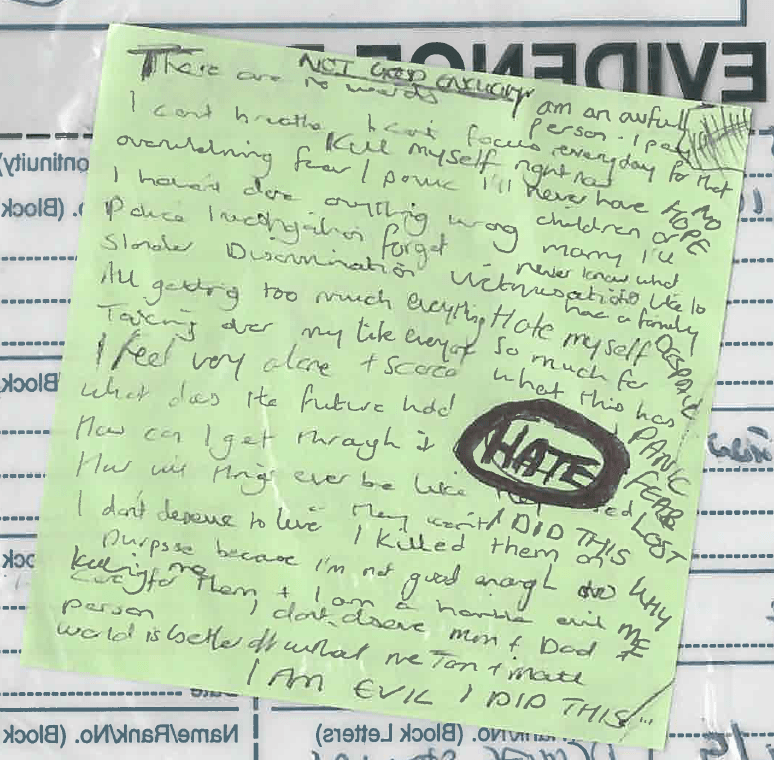 EVIDENCE
NOT GOOD ENOUGH
There are no words
I am an awful person. I pay everyday for that
I cant breathe I can't focus
Kill myself right now
overwhelming fear / panic I'll never have
children or marry I'll never know what
its like to have a family
NO HOPE
I haven't done anything wrong
Police Investigation forget
Slander Discrimination Victimisation
All getting too much everything Hate myself
DESPAIR
Taking over my life everyday so much for
what this has
I feel very alone + scared
What does the future hold
How can I get through it
HATE
PANIC
FEAR
LOST
How will things ever be like they
I DID THIS
I don't deserve to live I killed them on
purpose because I'm not good enough
WHY ME
to care for them + I am a horrible evil
person I don't deserve mum + Dad
killing me
world is better off without me
I AM EVIL I DID THIS
(Block
Name/Rank/No. (Block
Name/Rank/No. (Block Letters)